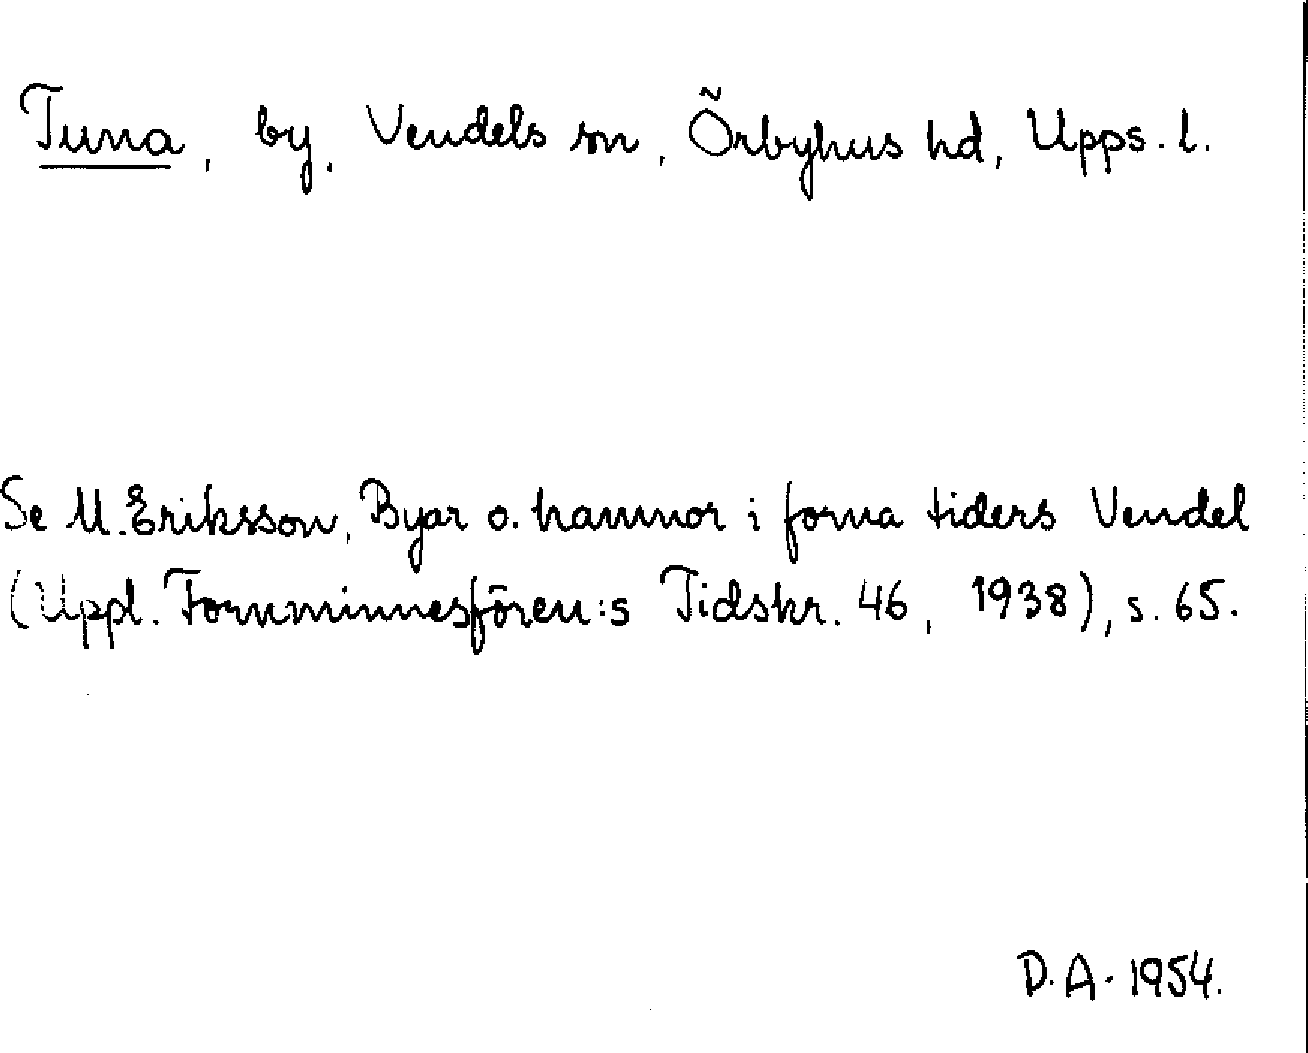 Tuna, by, Vendels sn, Örbyhus hd, Upps. l.
Se M. Eriksson, Byar o. hamnor i forna tiders Vendel
(Uppl. Fornminnesfören:s Tidskr. 46, 1938), s. 65.
D. A. 1954.